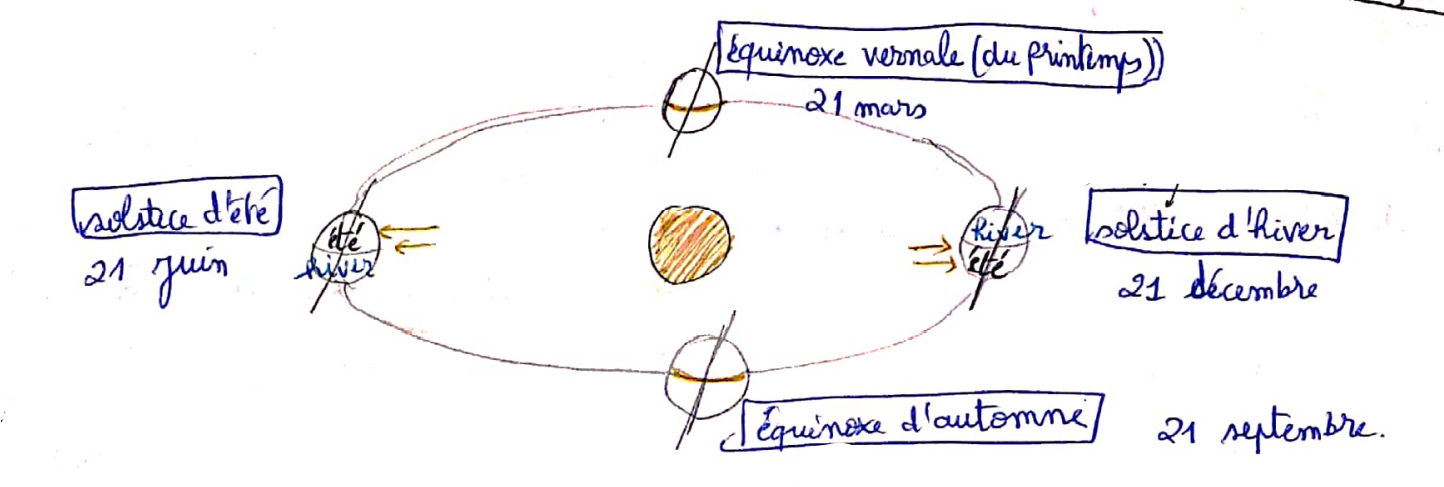 équinoxe vernale (du printemps))
21 mars
solstice d'été
21 juin
été
hiver
hiver
été
solstice d'hiver
21 décembre
Équinoxe d'automne
21 septembre.